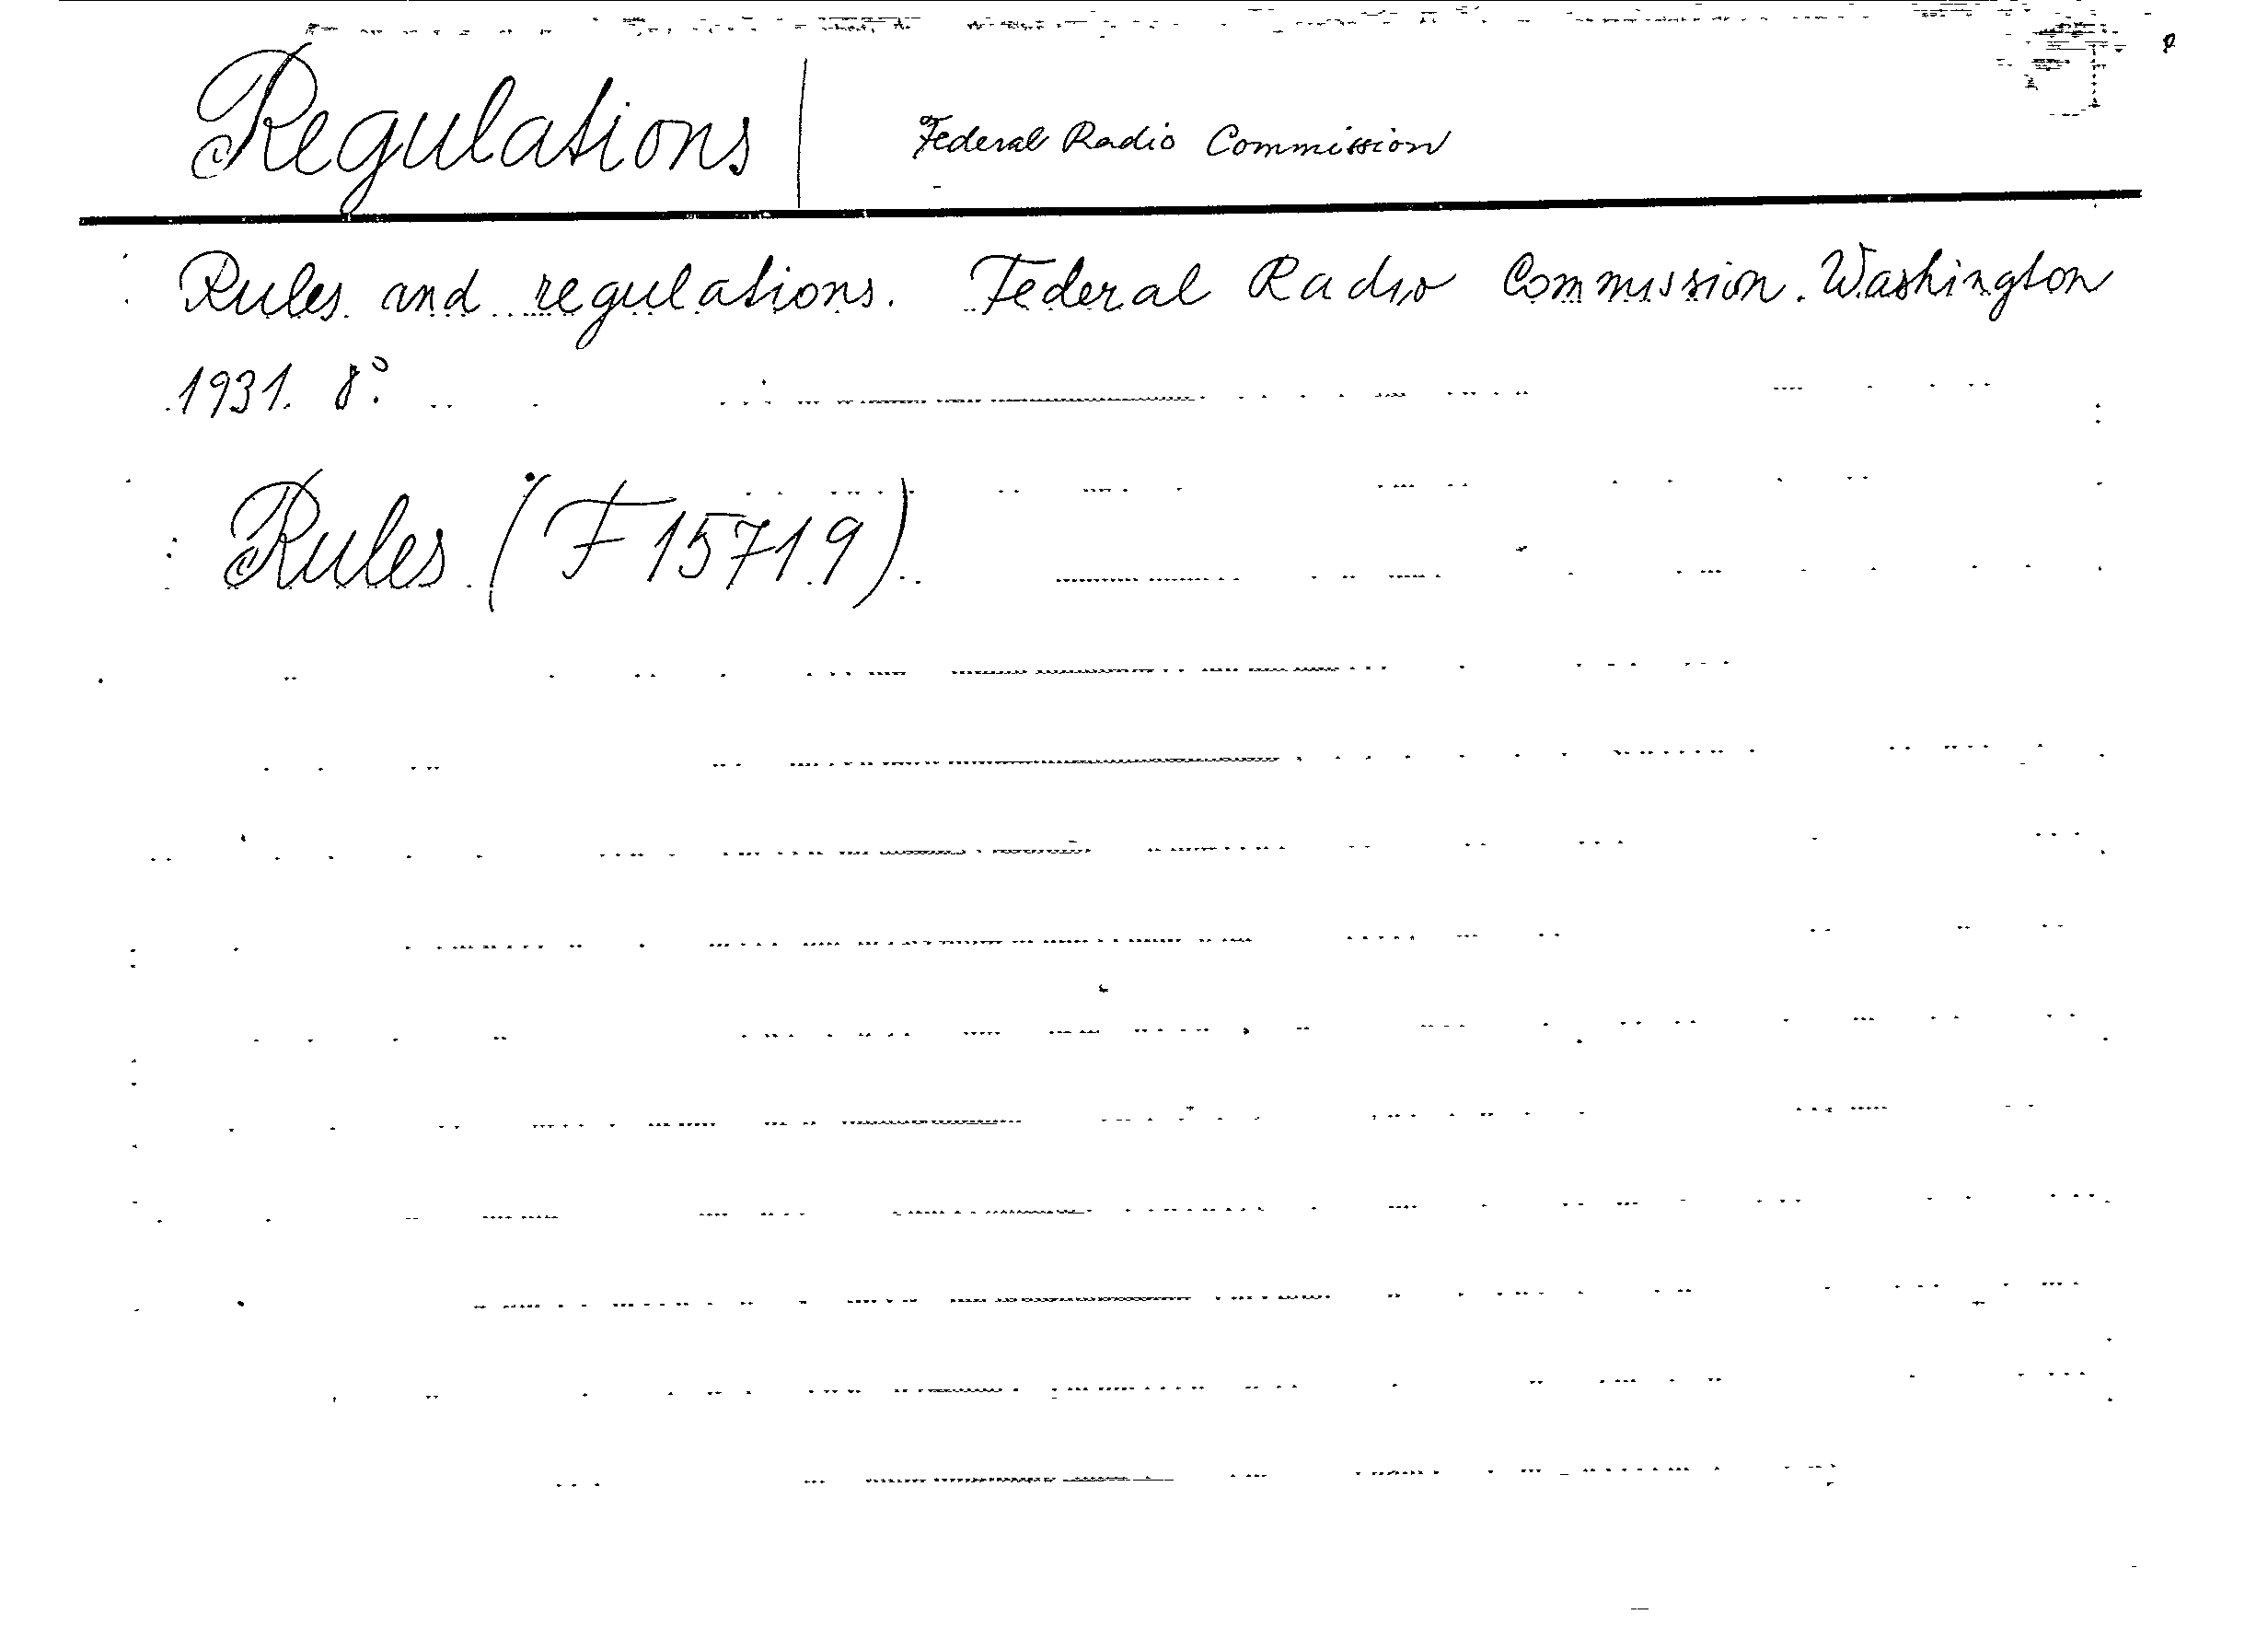 Regulations | Federal Radio Commission
Rules and regulations. Federal Radio Commission. Washington
1931. 8°.
Rules (F 15719)